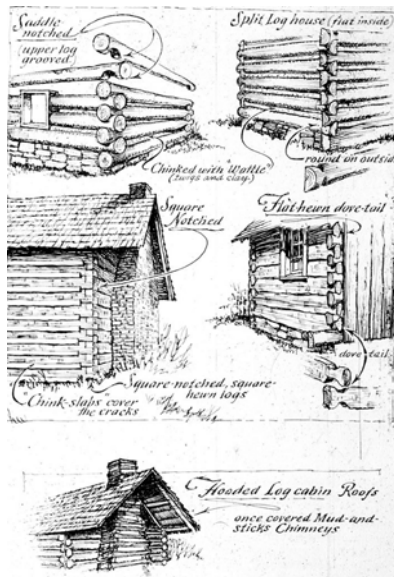 Saddle
notched
(upper log
grooved)
Split Log house (flat inside)
Chinked with "Wattle"
(twigs and clay.)
round on outside
Square
Notched
Flat-hewn dove-tail
dove-tail
Square-notched, square-
hewn logs
"Chink-slabs" cover
the cracks
Hooded Log cabin Roofs
once covered Mud-and-
sticks Chimneys